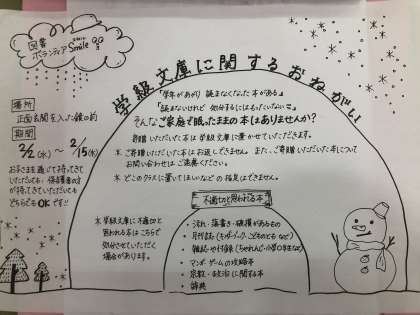 図書
ボランティア Smile
学級文庫に関するおねがい
「学年があがり 読まなくなった本がある」
「読まないけれど 処分するにはもったいない…」
そんなご家庭で眠ったままの本はありませんか?
寄贈いただいた本は学級文庫に置かせていただきます。
* ご寄贈いただいた本はお返しできません。また、ご寄贈いただいた本について
お問い合わせはご遠慮ください。
* どこのクラスに置いてほしいなどの指定はできません。
場所
正面玄関を入った鏡の前
期間
2/2(水) ~ 2/15(木)
お子さまを通じて持ってきて
いただいても、保護者の方
が持ってきていただいても
どちらもOKです!!
* 学級文庫に不適切と
思われる本はこちらで
処分させていただく
場合があります。
不適切と思われる本
・汚れ・落書き・破損があるもの
・月刊誌(キンダーブック、こどものとも など)
・雑誌・や付録(ちゃれんじ・小学〇年生など)
・マンガ・ゲームの攻略本
・宗教・政治に関する本
・辞典